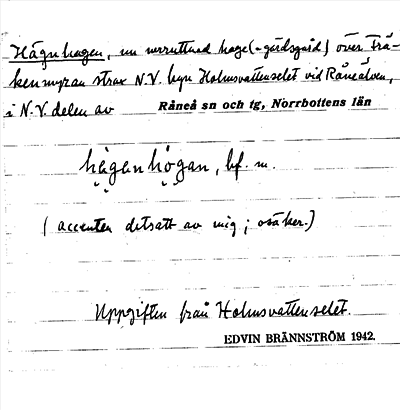 Hägnhagen, en norruttnad hage (=gärdsgård) över Frä-
kenmyran strax N.V. byn Holmsvattenselet vid Råneälven,
i N.V. delen av Råneå sn och tg, Norrbottens län
hägenhögan, bf. m.
(accenten ditsatt av mig; osäker.)
Uppgiften från Holmsvattenselet.
EDVIN BRÄNNSTRÖM 1942.